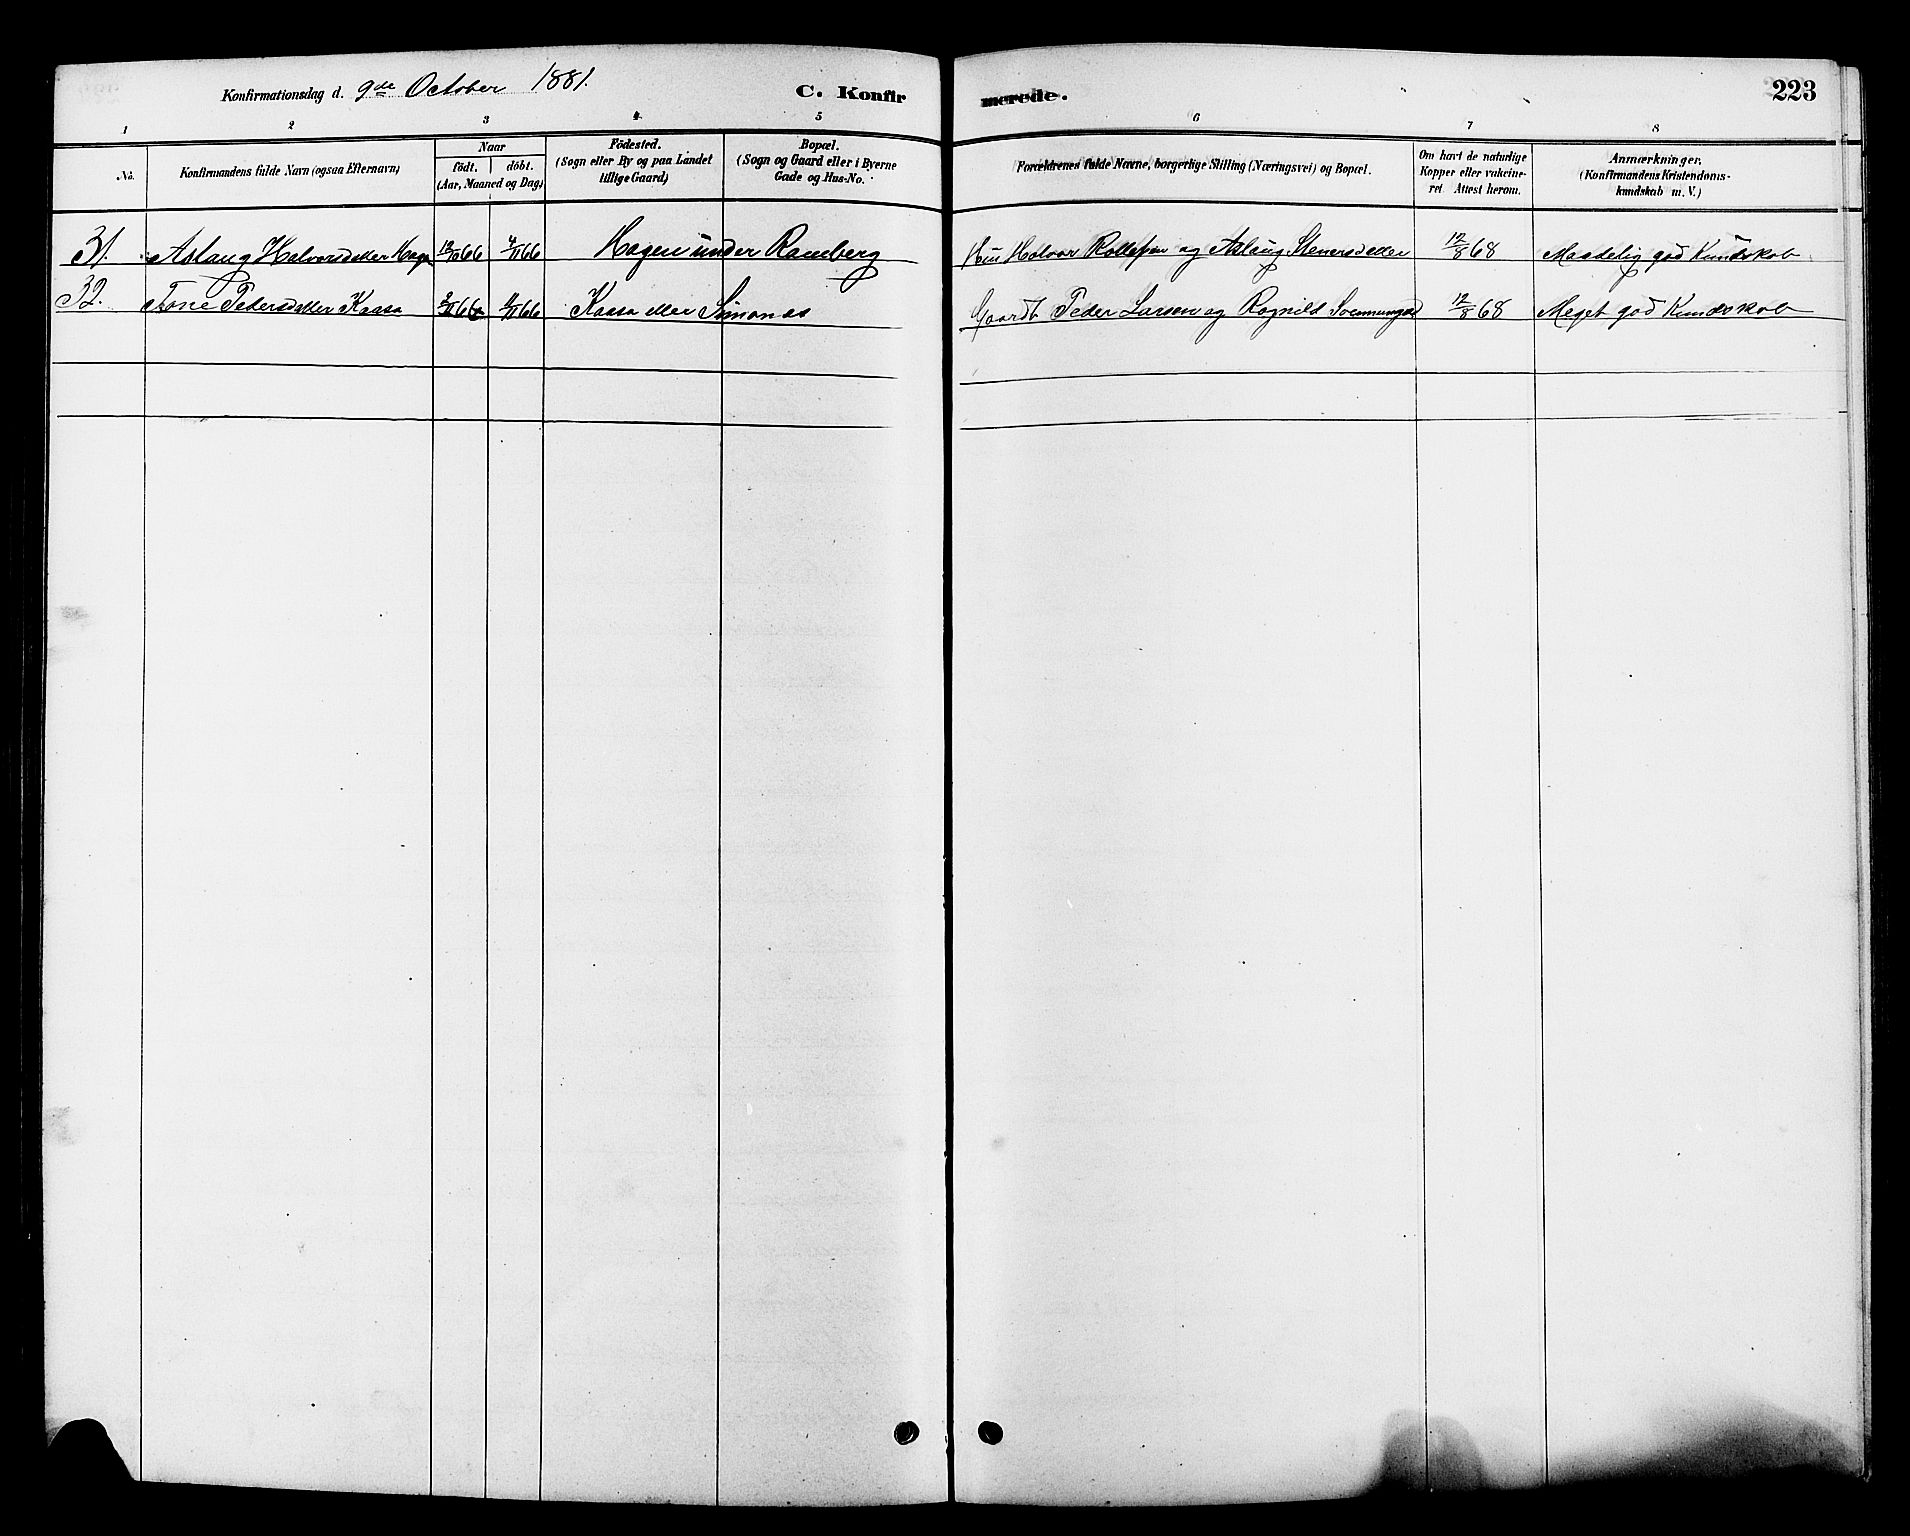 Konfirmationsdag d. 9de October 1881. C. Konfirmerede. 223
1 2 3 4 5 6 7 8
No. Konfirmandens fulde Navn (ogsaa Efternavn) Naar födt. döbt. (Aar, Maaned og Dag) Födested. (Sogn eller By og paa Landet tillige Gaard) Bopæl. (Sogn og Gaard eller i Byerne Gade og Hus-No. Forældrenes fulde Navne, borgerlige Stilling (Næringsvei) og Bopæl. Om havt de naturlige Kopper eller vakcineret Attest herom. Anmærkninger. (Konfirmandens Kristendomskundskab m. V.)
31. Aslaug Halvorsdatter Hagen 66 4/11 66 Hagen under Ramberg Halvor Rollefsen og Aslaug 12/8 68 Maadelig god Kundskab
32. Tone Pedersdatter Kaasa 66 4/11 66 Kaasa eller Simones Gaardb Peder Larsen og Ragnild 12/8 68 Meget god Kundskab